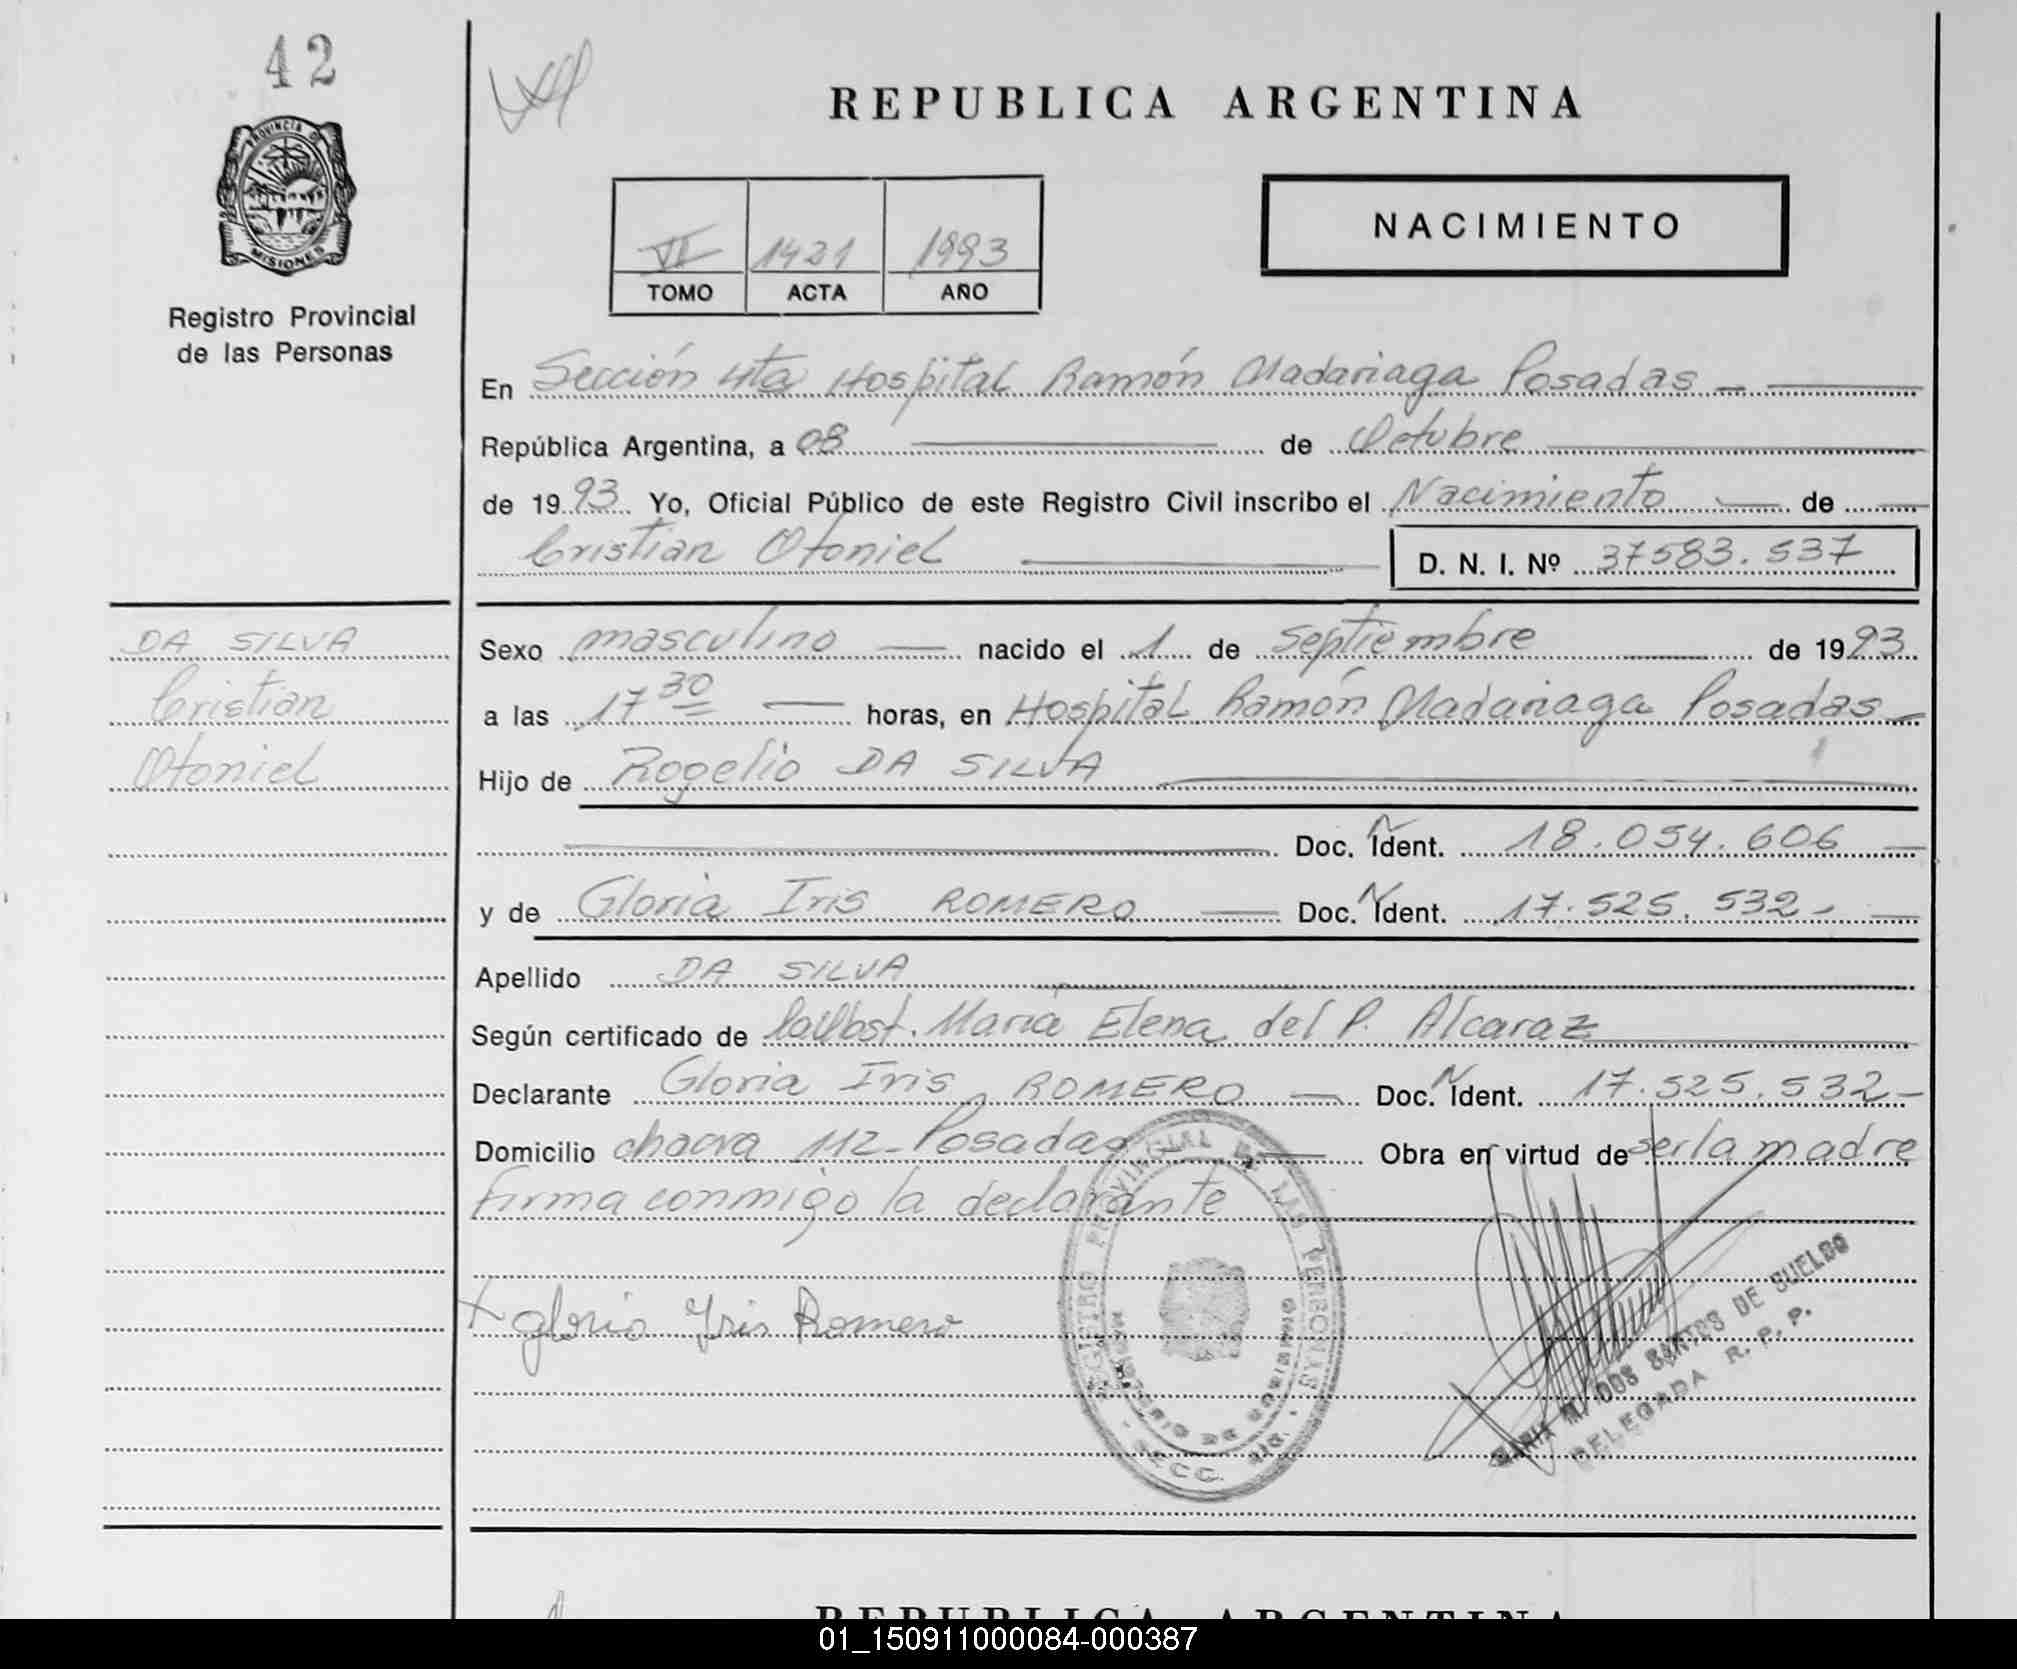 42
PROVINCIA D
MISIONES
Registro Provincial
de las Personas
REPUBLICA ARGENTINA
VI 1421 1993
TOMO ACTA AÑO
NACIMIENTO
En Sección 4ta Hospital Ramón Madariaga Posadas
República Argentina, a 08 de Octubre
de 1993 Yo, Oficial Público de este Registro Civil inscribo el Nacimiento de
Cristian Otoniel D. N. I. Nº 37583.537
DA SILVA
Cristian
Otoniel
Sexo masculino nacido el 1 de septiembre de 1993
a las 17 30 horas, en Hospital Ramón Madariaga Posadas
Hijo de Rogelio DA SILVA
Doc. Ident. 18.054.606
y de Gloria Iris ROMERO Doc. Ident. 17.525.532-
Apellido DA SILVA
Según certificado de María Elena del P. Alcaraz
Declarante Gloria Iris ROMERO Doc. Ident. 17.525.532-
Domicilio chacra 112-Posadas Obra en virtud de ser la madre
firma conmigo la declarante
REGISTRO PROVINCIAL DE LAS PERSONAS
MINISTERIO DE GOBIERNO
+ gloria Iris Romero
MARIA M. DOS SANTOS DE SUELDO
DELEGADA R. P. P.
REPUBLICA ARGENTINA
01_150911000084-000387